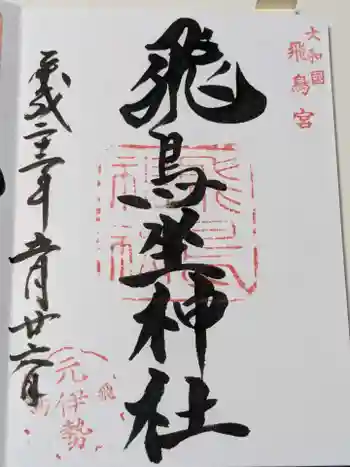 大和國
飛鳥宮
飛鳥坐神社
平成二十三年五月廿六日
元伊勢
飛鳥